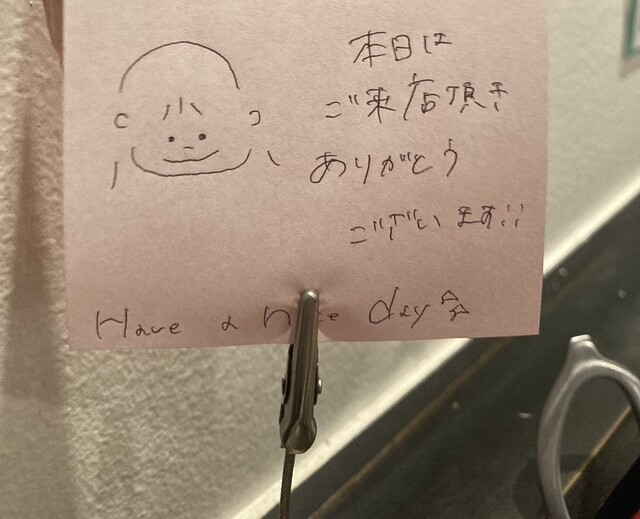 本日は
ご来店頂き
ありがとう
ございます!!
Have a nice day☆☆